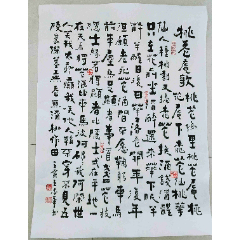 桃花庵歌 桃花塢里桃花庵桃
花庵下桃花仙桃花
仙人種桃樹又摘桃花換酒錢酒醒
只在花前坐酒醉還來花下眠半
醒半醉日復日花落花開年復年
但願老死花酒間不願鞠躬車馬
前車塵馬足貴者趣酒盞花枝
隱士緣若將顯者比隱士一在平地一
在天若將花酒比車馬彼何碌碌我何閒世
人笑我太瘋癲我笑他人看不穿不見五
陵豪傑墓無花無酒鋤作田